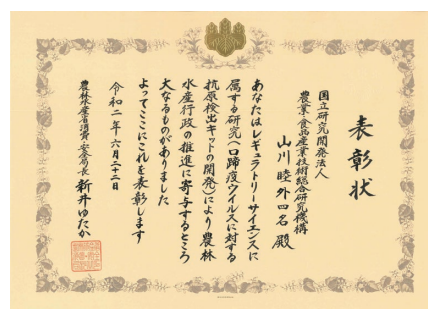 表彰状
国立研究開発法人
農業・食品産業技術総合研究機構
山川睦外四名殿
あなたはレギュラトリーサイエンスに
属する研究(口蹄疫ウイルスに対する
抗原検出キットの開発)により農林
水産行政の推進に寄与するところ
大なるものがありました
よってここにこれを表彰します
令和二年六月二十二日
農林水産省消費・安全局長 新井ゆたか